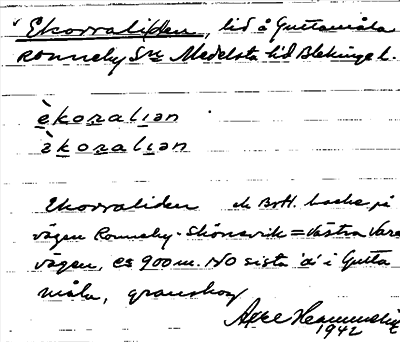 Ekorraliden, lid å Guttamåla
Ronneby Sn Medelsta hd Blekinge l.
èkoraliən
èkoraliən
Ekorraliden backe på
vägen Ronneby - Skönevik = Västra Vare
vägen, 900 m. NO sista 'a' i Gutta
måla, granskog
1942